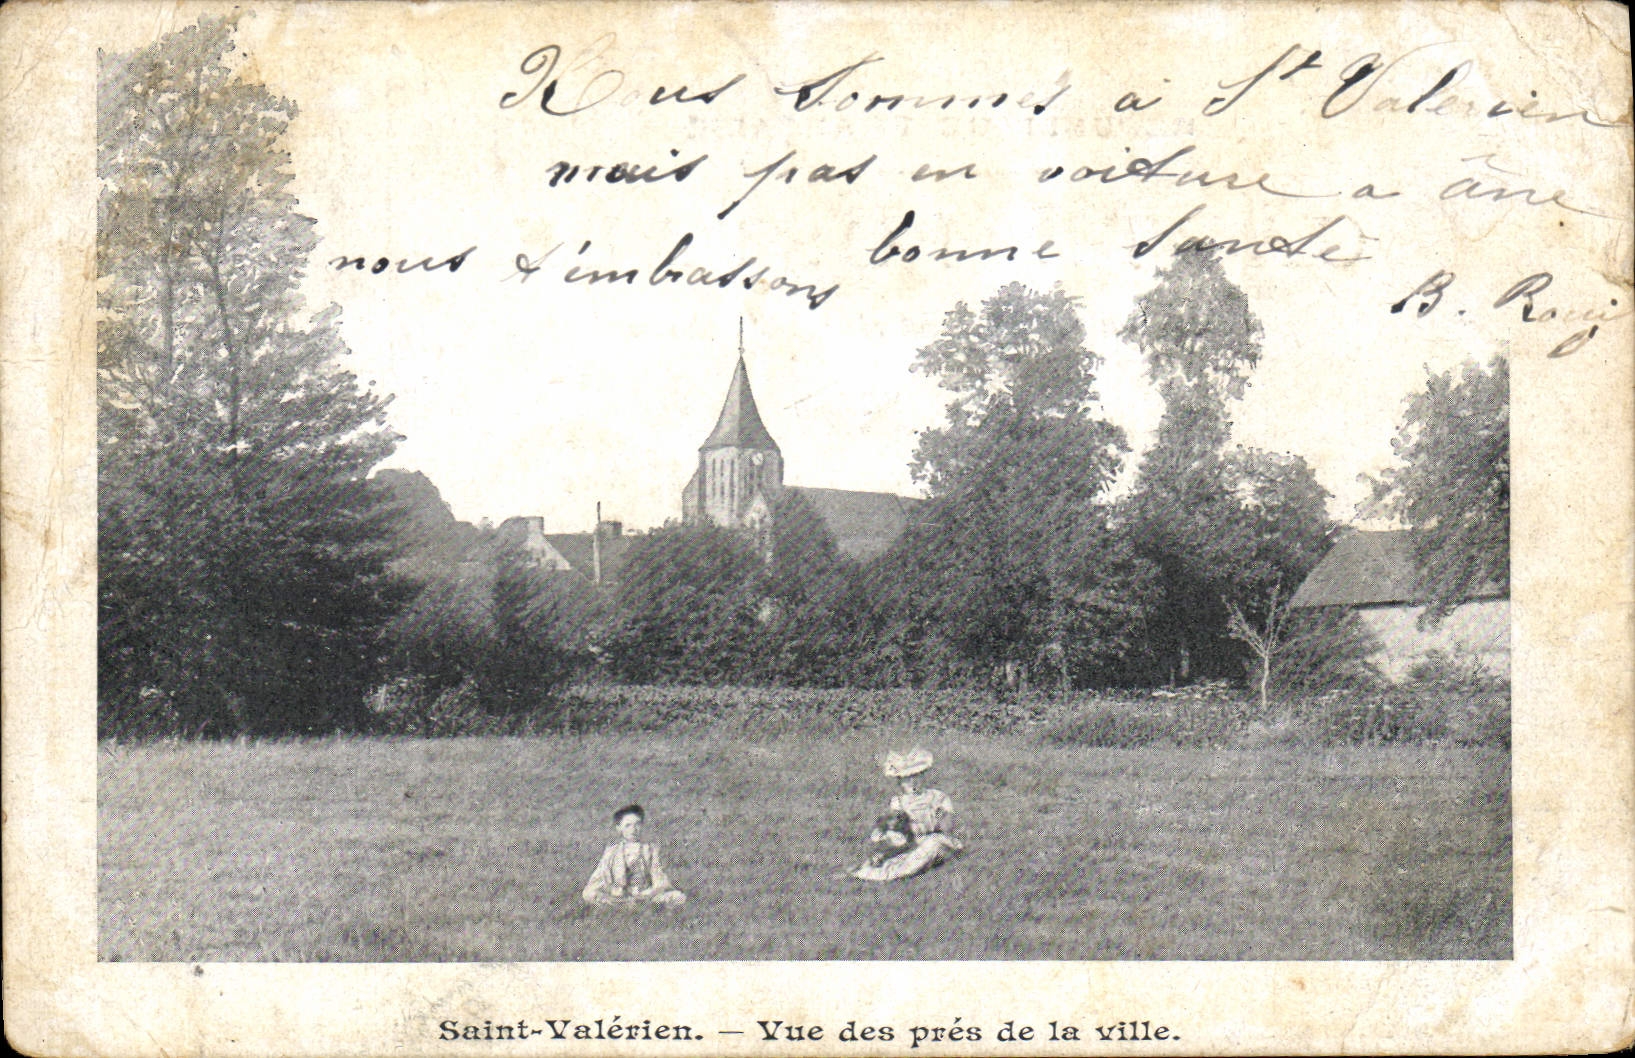 Nous sommes à St Valerien
mais pas en voiture a âne
nous t'embrassons bonne santé
B.
Saint-Valérien. — Vue des prés de la ville.